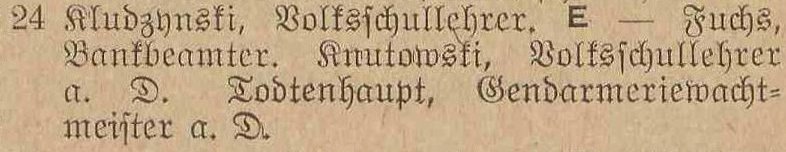 24 Kludzynski, Volksschullehrer. E — Fuchs,
Bankbeamter. Knutowski, Volksschullehrer
a. D. Todtenhaupt, Gendarmeriewacht-
meister a. D.